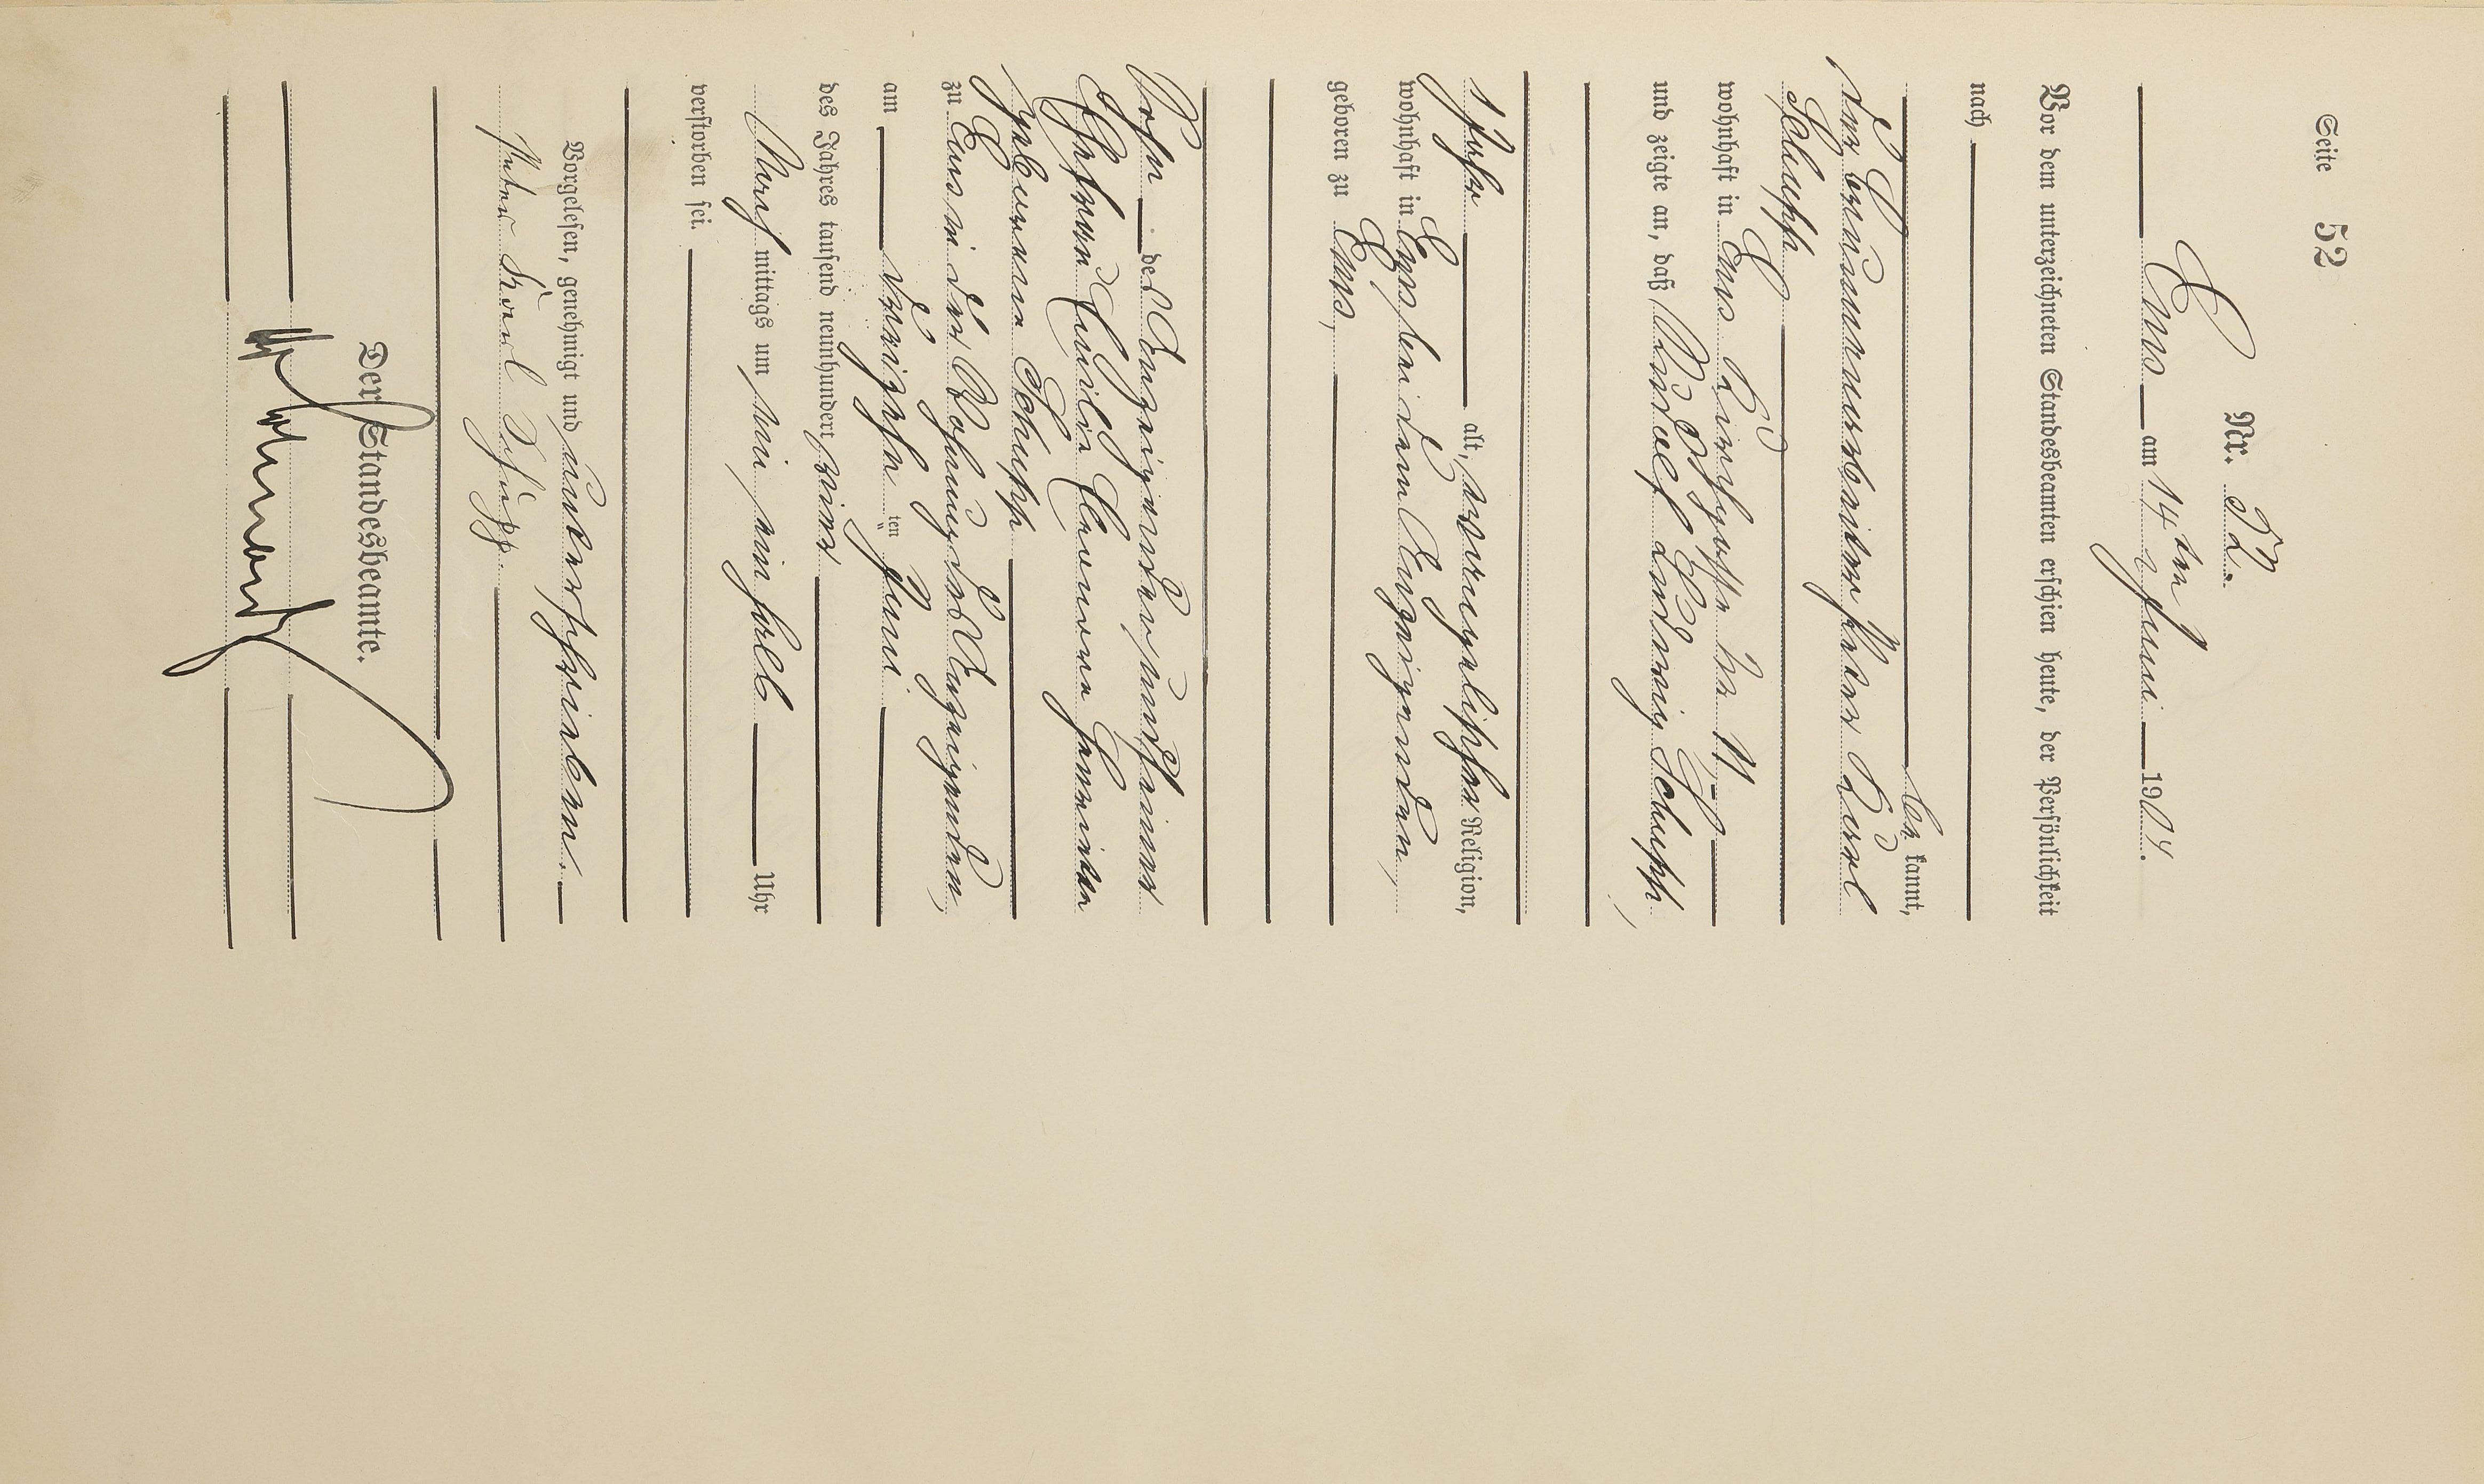 Seite 52
Nr. 52.
Ems am 14ten Juni 1904.
Vor dem unterzeichneten Standesbeamten erschien heute, der Persönlichkeit
nach
be kannt,
der Eisenarbeiter Peter Karl
Schupp
wohnhaft in Ems
und zeigte an, daß Adolf Ludwig Schupp,
1 Jahr alt, evangelischer Religion,
wohnhaft in Ems bei dem Anzeigenden,
geboren zu Ems,
Sohn des Anzeigenden und seiner
Ehefrau
geborene Schupp
zu Ems in der Wohnung des Anzeigenden,
am dreizehn ten Juni
des Jahres tausend neunhundert vier
Nach mittags um ein ein halb Uhr
verstorben sei.
Vorgelesen, genehmigt und unterschrieben.
Peter Karl Schupp.
Der Standesbeamte.